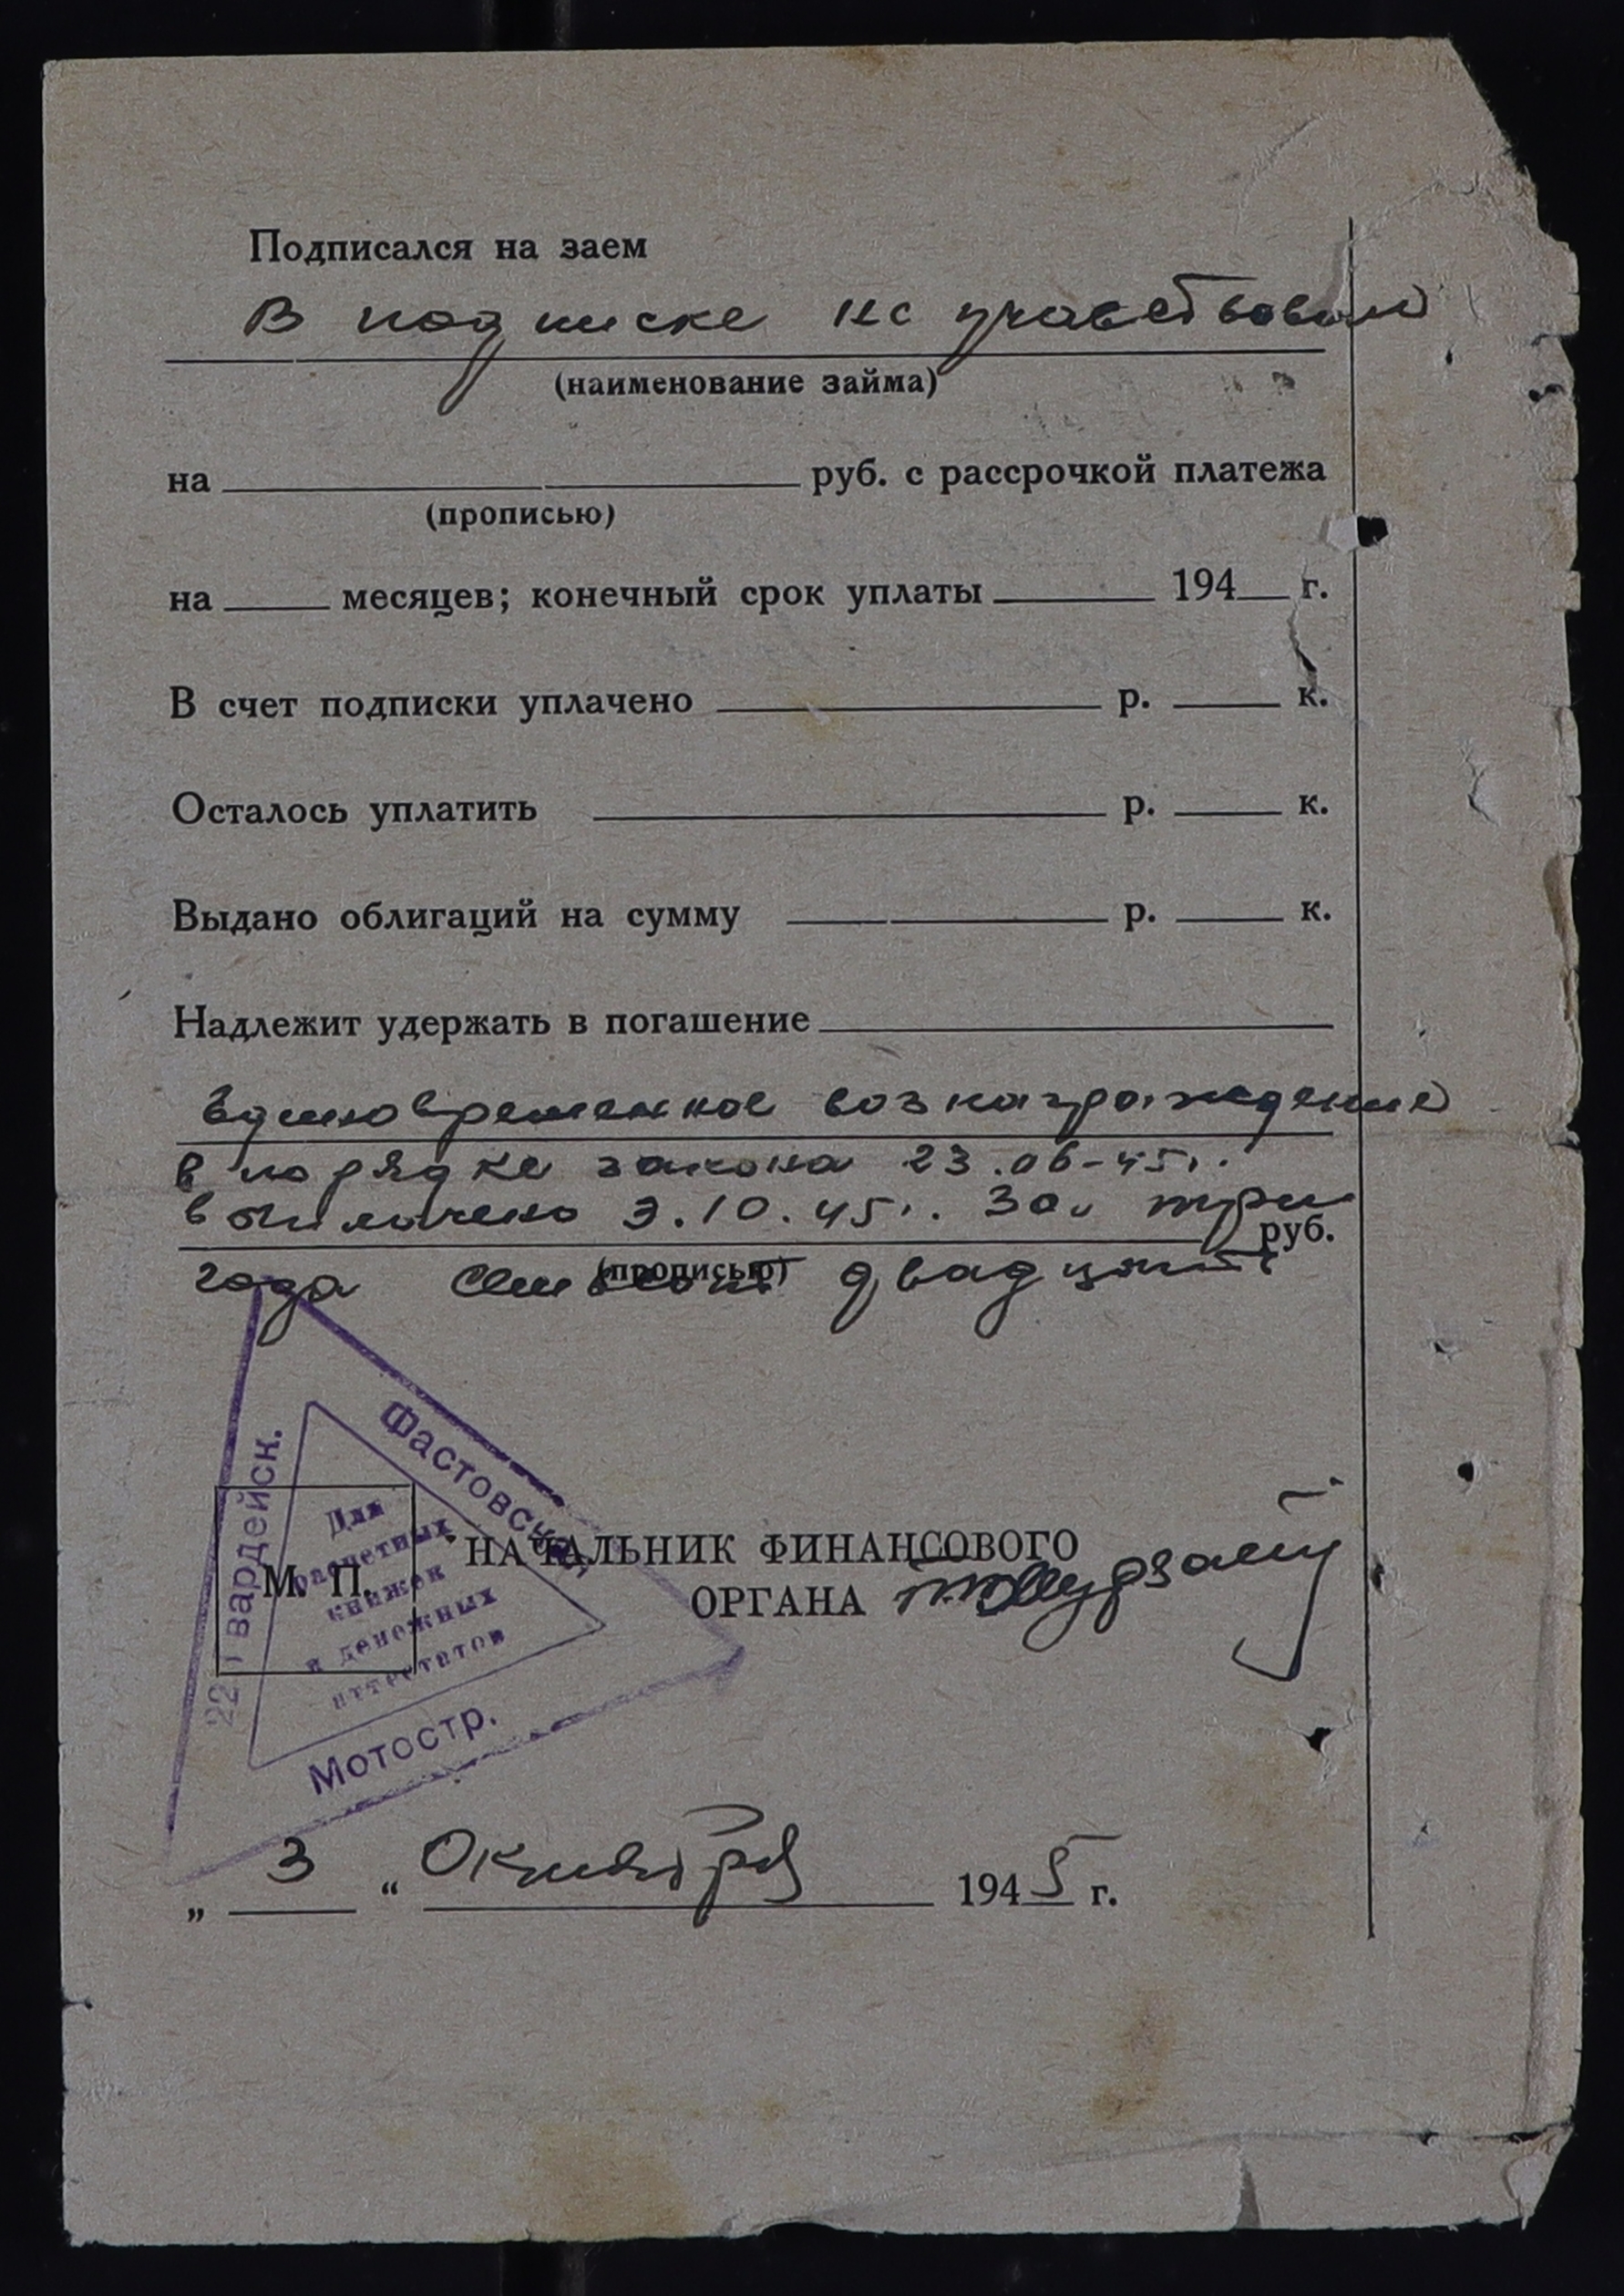 Подписался на заем
В подписке не участвовал
(наименование займа)
на руб. с рассрочкой платежа
(прописью)
на месяцев; конечный срок уплаты 194 г.
В счет подписки уплачено р. к.
Осталось уплатить р. к.
Выдано облигаций на сумму р. к.
Надлежит удержать в погашение
Единовременное вознаграждение
в порядке закона 23.06-45г.
выплачено 3.10.45г. За три
руб.
(прописью)
года двадцать
22 Гвардейск.
Фастовская
Мотостр.
Для
расчетных
книжек
и денежных
аттестатов
М. П.
НАЧАЛЬНИК ФИНАНСОВОГО
ОРГАНА
„ 3 “ Октября 1945 г.